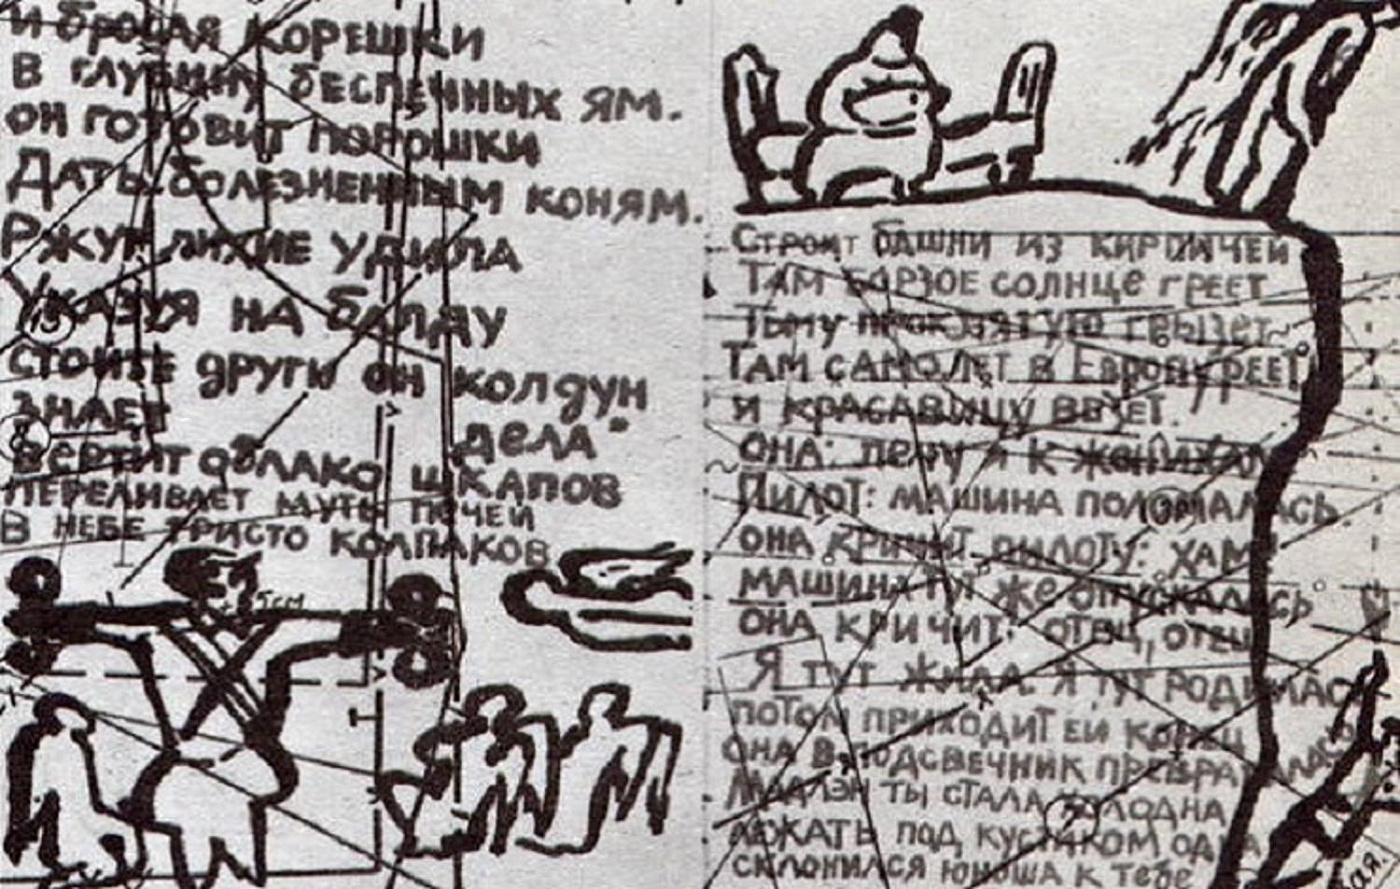 и бросая корешки
в глубину беспечных ям.
он готовит порошки
Дать болезненным коням.
Ржут лихие удила
указуя на балду
стойте други он колдун
знает
дела"
вертит облако шкапов
переливает муть печей
в небе тристо колпаков
Строит башни из кирпичей
там борзое солнце греет
тьму проклятую грызет
там самолет в Европу реет
и красавицу везет.
она: лечу я к женихам
Пилот: машина поломалась.
она кричит пилоту: хам!
машина тут же опускалась
она кричит: отец, отец
Я тут жила. Я тут родилась
потом приходит ей конец
она в подсвечник превратилась
Мадлэн ты стала холодна
лежать под кустиком одна
склонился юноша к тебе